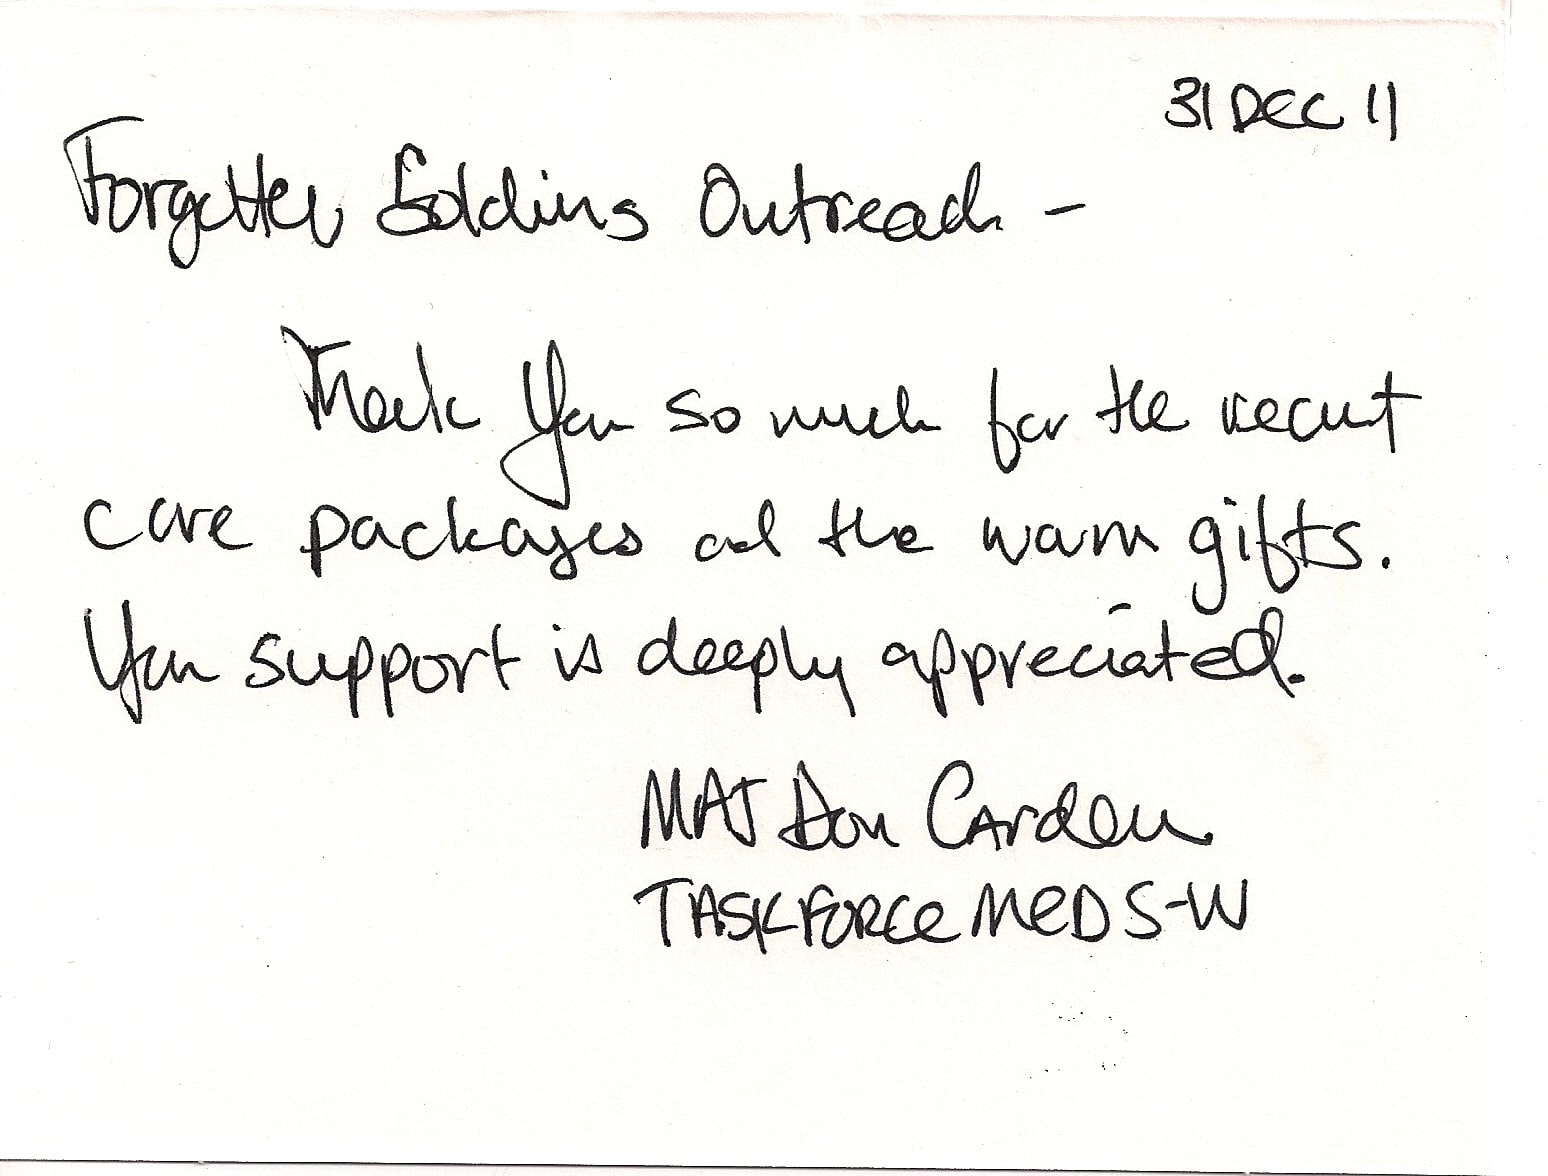 31 DEC 11
Forgotten Soldiers Outreach -
Thank you so much for the recent
care packages and the warm gifts.
Your support is deeply appreciated.
MAJ Don Carden
TASK FORCE MED S-W